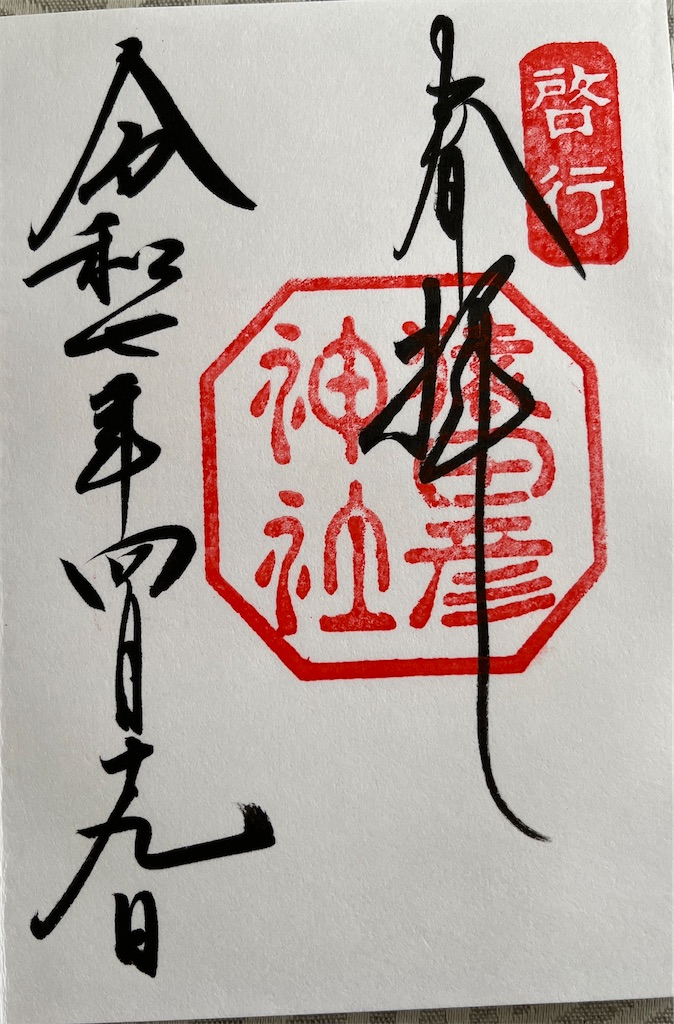 啓行
奉拝
猿田彦
神社
令和七年四月十九日